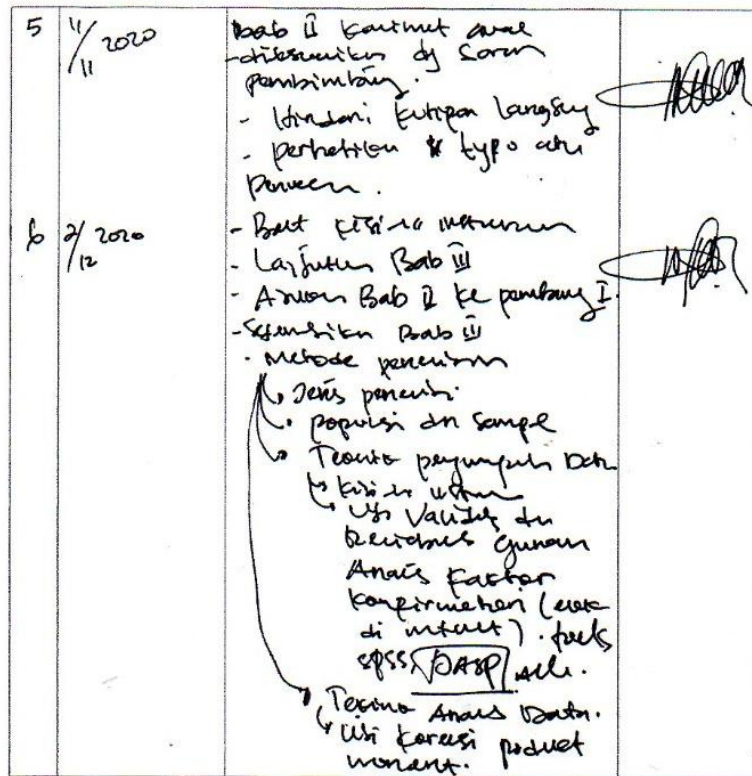 5 11/11 2020 Bab II kalimat awal
- disesuaikan dg saran
pembimbing.
- Hindari kutipan langsung
- perhatikan typo atau
6 2/12 2020 - Buat kisi-kisi instrumen
- Lanjutkan Bab III
- Bab II ke pembimbing I.
- Bab III
- Metode penelitian
Jenis penelitian
populasi dan sampel
Teknik pengumpulan Data
kisi-kisi
Uji Validitas dan
Reliabilitas gunakan
Analisis Faktor
Konfirmatori (
di internet).
SPSS, JASP, dll.
Teknik Analisis Data.
Uji korelasi product
moment.